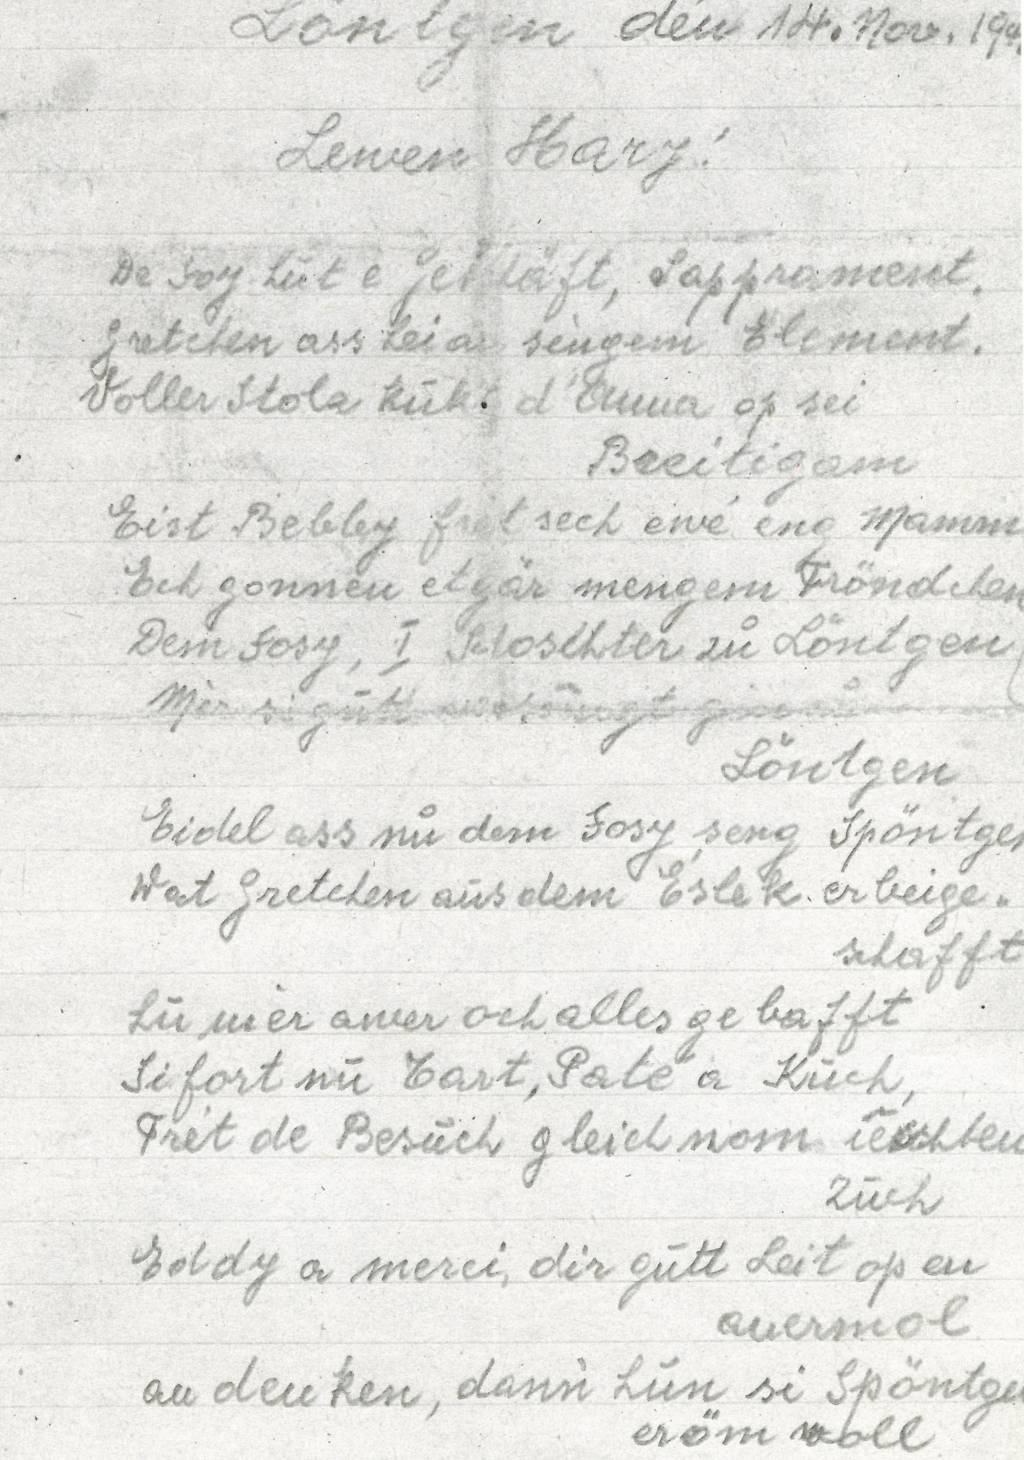 Löntgen den 14. Nov. 194
Lewen Harz!
De Josy hüt e geklåft, Sapprament.
Gretchen ass hei a sengem Element.
Voller Stolz kükt d'Emma op sei
Breitigam
Eist Bebby frét sech ewé eng Mamm
Ech gonnen et gär mengem Fröndchen
Dem Josy, I Kloschter zů Löntgen
Mir si gutt versüergt gin
Löntgen
Eidel ass nů dem Josy seng Spöntgen
Wat Gretchen aus dem Éslek erbeige-
schafft
hü mer awer och alles gebafft
Si fort nü Tart, Paté a Kůch,
Frét de Besůch gleich nom ieschten
Zůch
Eddy a merci, dir gutt Leit op en
auermol
an denken, dann hün si Spöntgen
eröm voll